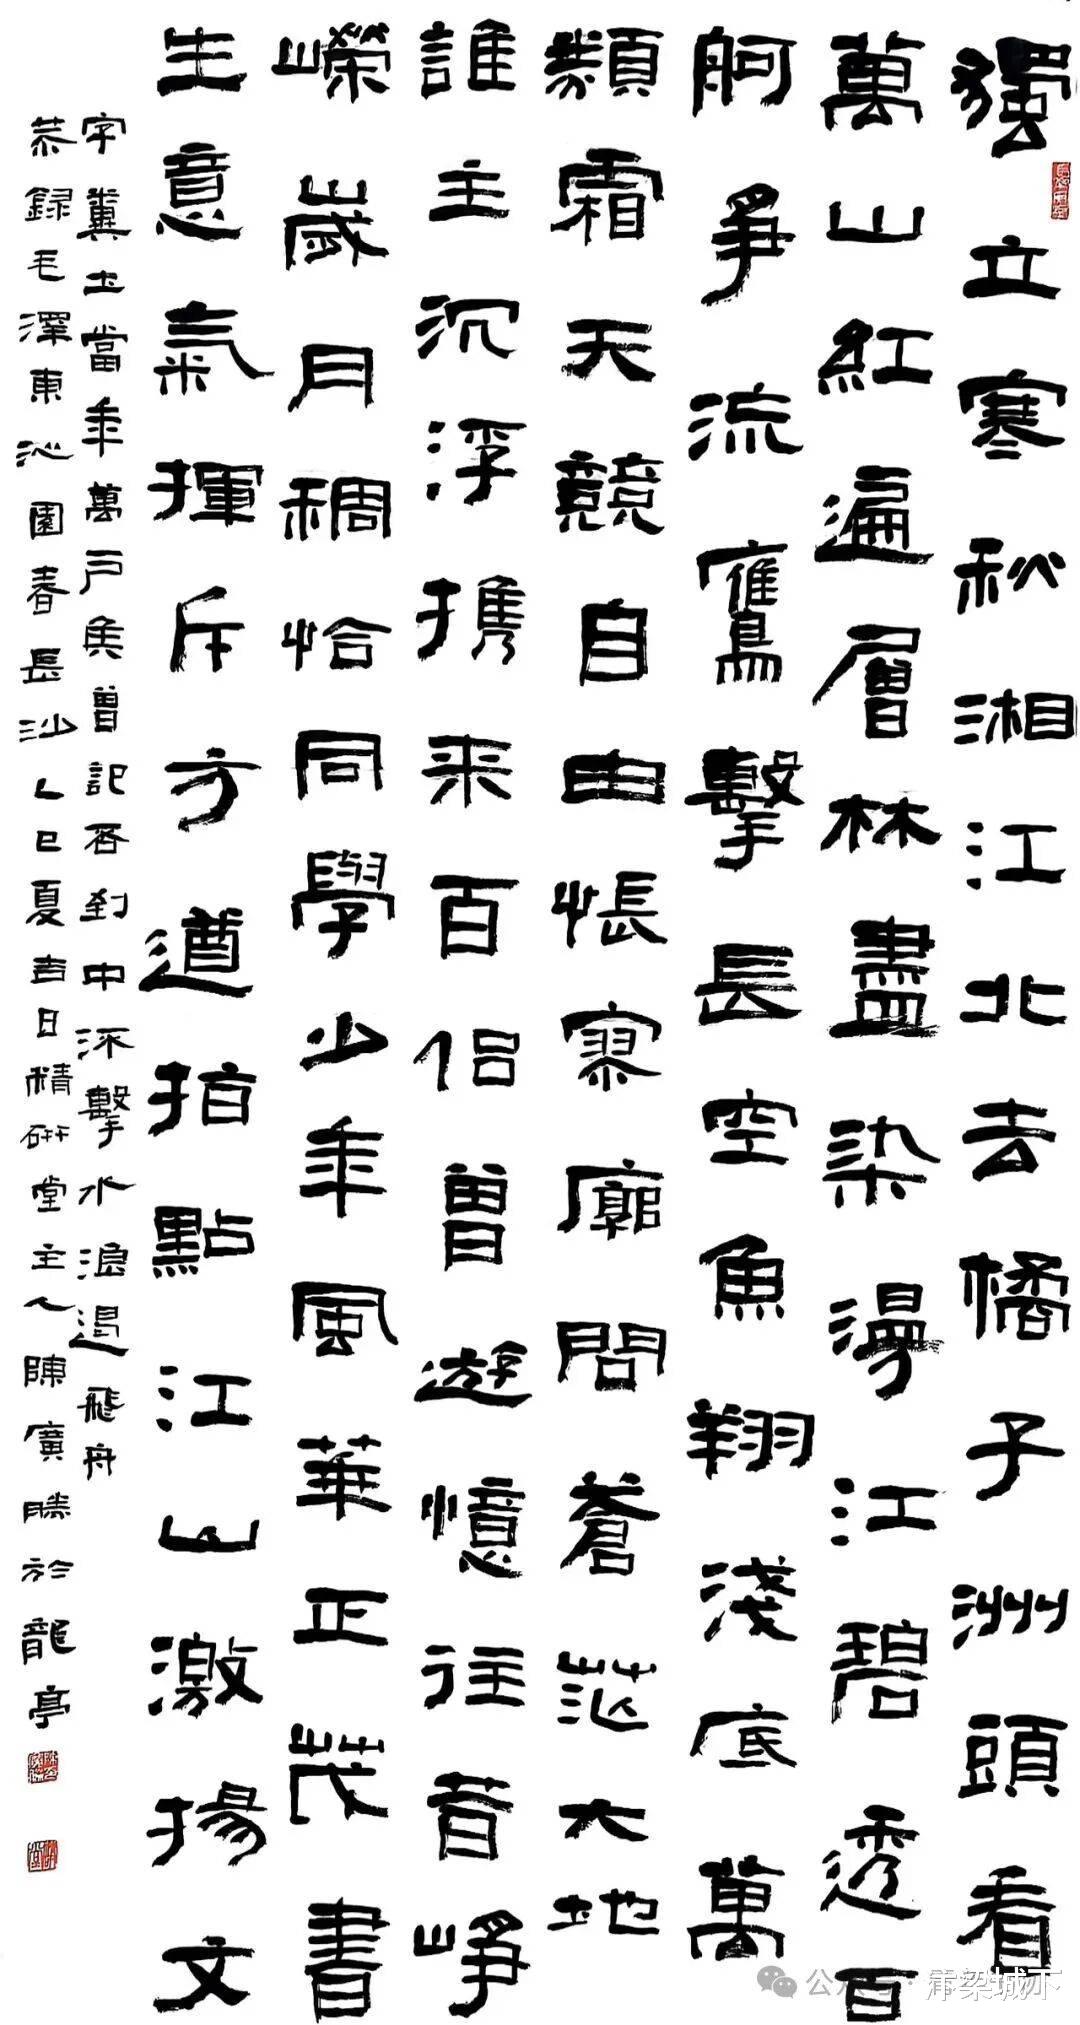 獨立寒秋湘江北去橘子洲頭看
萬山紅遍層林盡染漫江碧透百
舸爭流鷹擊長空魚翔淺底萬
類霜天競自由悵寥廓問蒼茫大地
誰主沉浮携来百侣曾遊憶往昔崢
嶸歲月稠恰同學少年風華正茂書
生意氣揮斥方遒指點江山激揚文
字糞土當年萬户侯曾記否到中流擊水浪遏飛舟
恭録毛澤東沁園春長沙乙巳夏吉日精研堂主人陳廣勝於龍亭
公众号